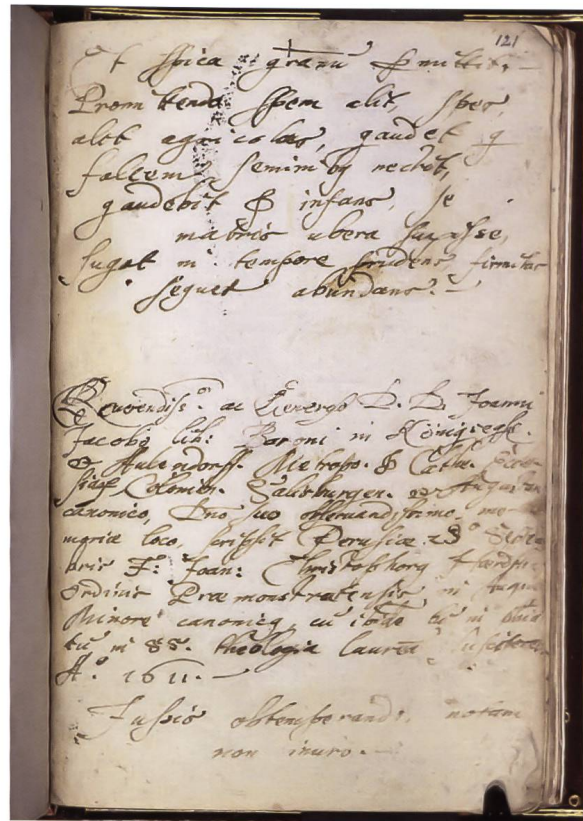 121
Et spica granū
Promittendo spem alit, spes,
alit agricolas, gaudet q
fallem seminibq
gaudebit & infans, se
matris ubera suxisse,
sugat in tempore prudens, firmitas
sequet abundans.
Reverendiss.º ac Generoso D. D. Joanni
Jacobo lib: Baroni in Königsegk
& Aulendorff. Metropo. & Cathe.
siaȩ Coloniȩ. Salisburgen. et Augustan
canonico, Dno suo observandissimo, me
moriæ loco, scripsit Perusiæ 23
bris F: Joan: Christophorq
Ordinis Præmonstratensis in Augia
Minore canonicq, cū
tu in SS. theologia laureā
Aº. 1611.
Jussis obtemperandi, notam
non inuro.